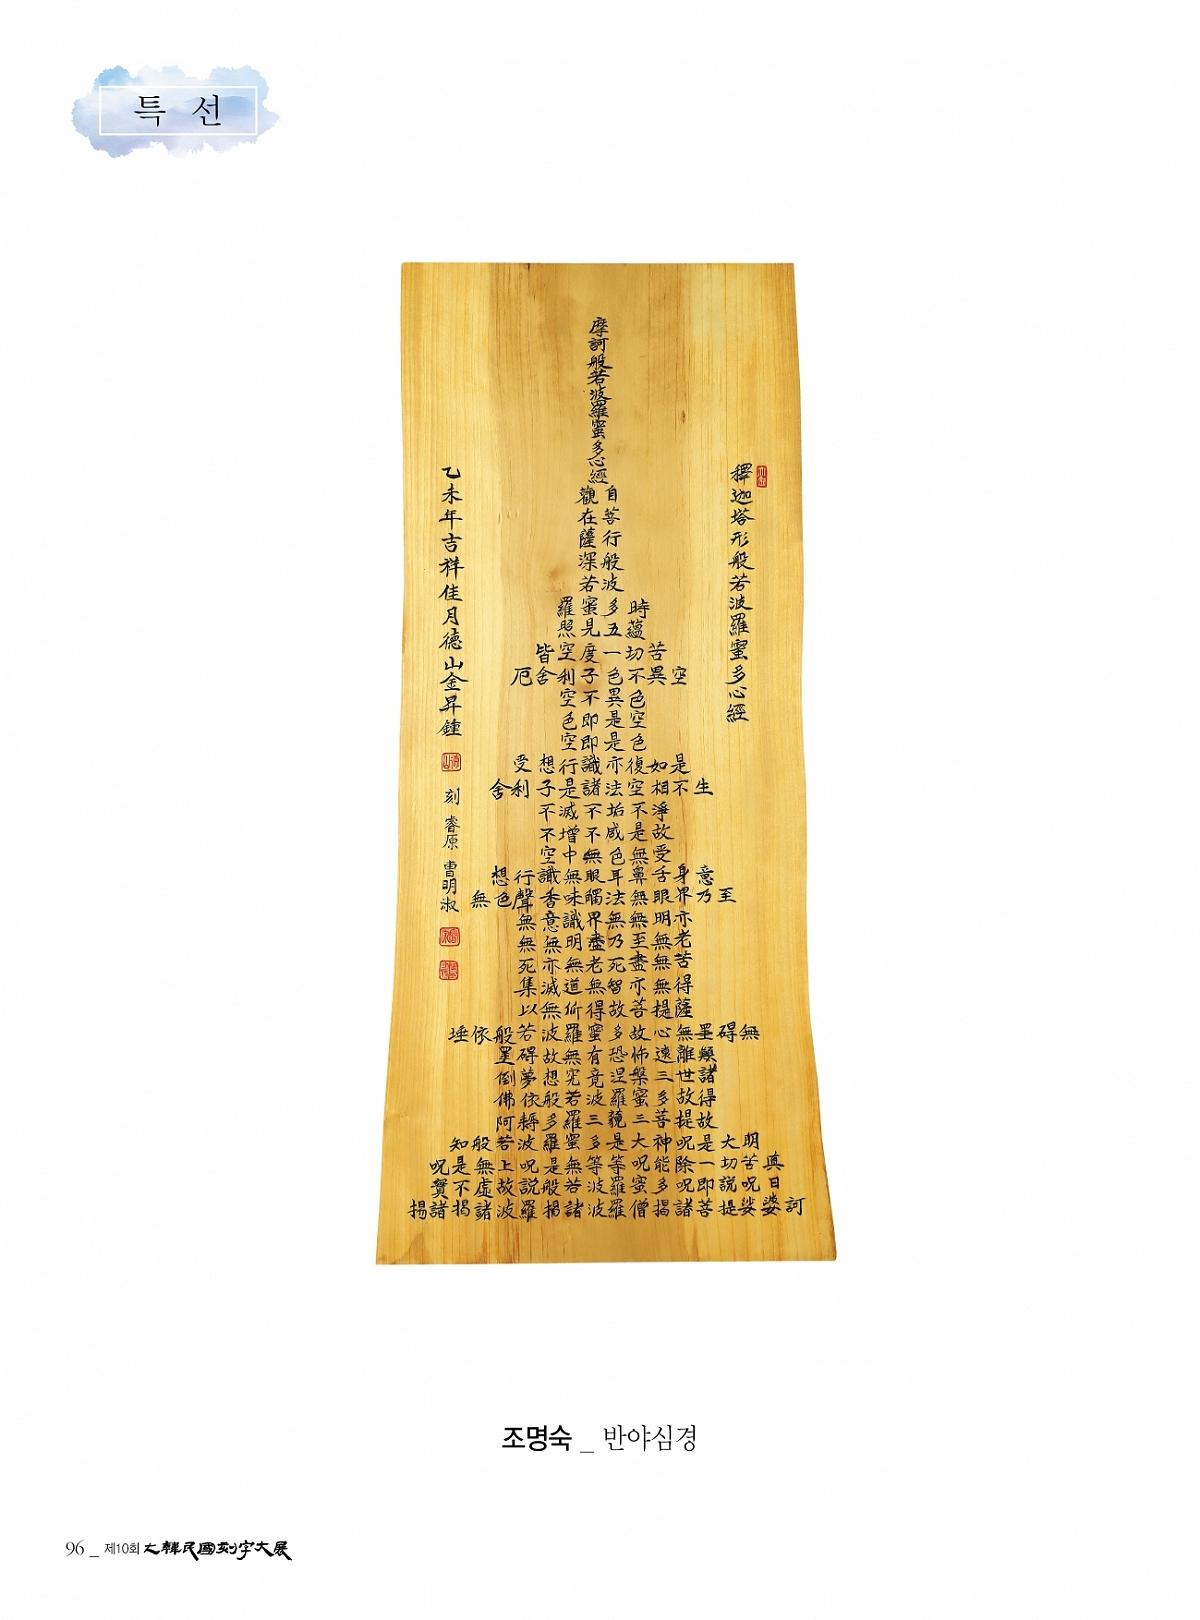 특 선
釋迦塔形般若波羅蜜多心經
摩訶般若波羅蜜多心經
觀自
在菩
薩行
深般
若波
羅蜜多時
照見五蘊
皆空度一切苦
厄舍利子色不異空
空不異色
色即是空
空即是色
受想行識亦復如是
舍利子是諸法空相不生
不滅不垢不淨
不增不咸是故
空中無色無受
想行識無眼耳鼻舌身意
無色聲香味觸法無眼界乃至
無意識界無無明亦
無無明盡乃至無老
死亦無老死盡無苦
集滅道無智亦無得
以無所得故菩提薩
埵依般若波羅蜜多故心無罣碍無
罣碍故無有恐怖遠離顚
倒夢想究竟涅槃三世諸
佛依般若波羅蜜多故得
阿耨多羅三藐三菩提故
知般若波羅蜜多是大神呪是大明
呪是無上呪是無等等呪能除一切苦真
實不虛故說般若波羅蜜多呪即說呪曰
揭諸揭諸波羅揭諸波羅僧揭諸菩提娑婆訶
乙未年吉祥佳月德山金昇鍾
刻 睿原 曺明淑
조명숙 _ 반야심경
96 _ 제10회 大韓民國刻字大展